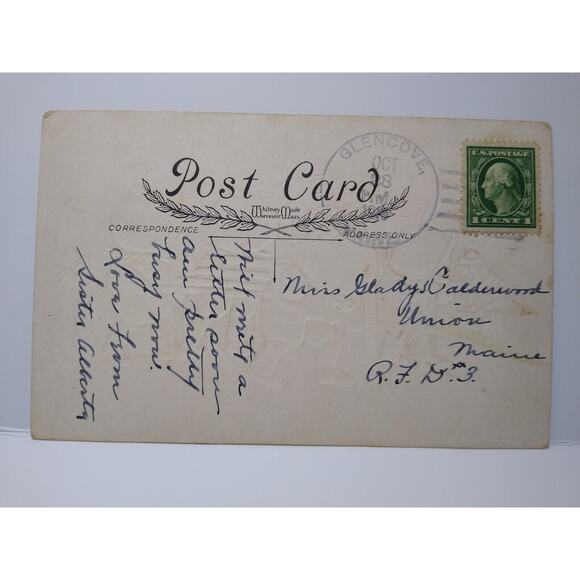 Post Card
Whitney Made
Worcester Mass.
CORRESPONDENCE
ADDRESS ONLY
GLENCOVE,
OCT
28
M
U.S. POSTAGE
1 CENT 1
Miss Gladys Calderwood
Union
Maine
R. F. D. 3.
Will write a
letter soon
am pretty
busy now.
Love from
Sister Alberta